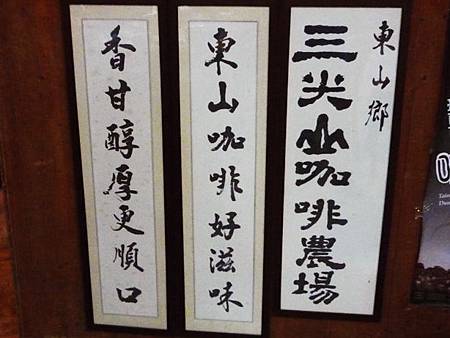 東山鄉
三尖山咖啡農場
東山咖啡好滋味
香甘醇厚更順口